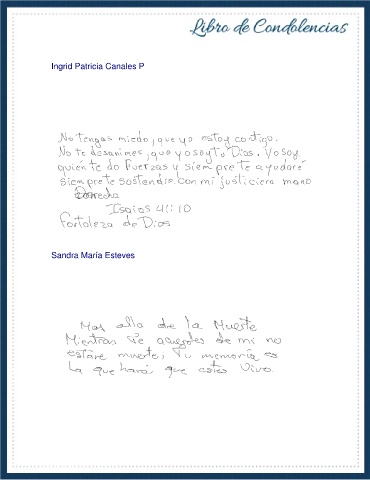 Libro de Condolencias
Ingrid Patricia Canales P
No tengas miedo, que yo estoy contigo.
No te desanimes, que yo soy tu Dios. Yo soy
quien te do fuerzas y siempre te ayudaré
siempre te sostendre con mi justiciera mano
Derecha
Isaios 41:10
fortaleza de Dios
Sandra María Esteves
Mas alla de la Muerte
Mientras te acuerdes de mi no
estare muerte; Tu memoria es
La que hará que estes Vivo.